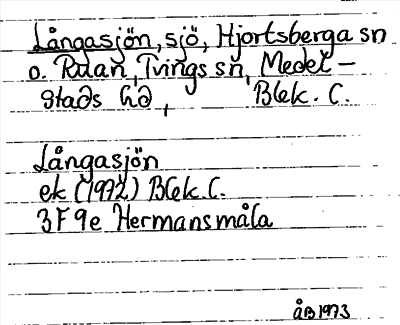 Långasjön, sjö, Hjortsberga sn
o. Ruan, Tvings sn, Medel-
stads hd, Blek. C.
Långasjön
ek (1972) Blek. C.
3F 9e Hermansmåla
ÅB 1973